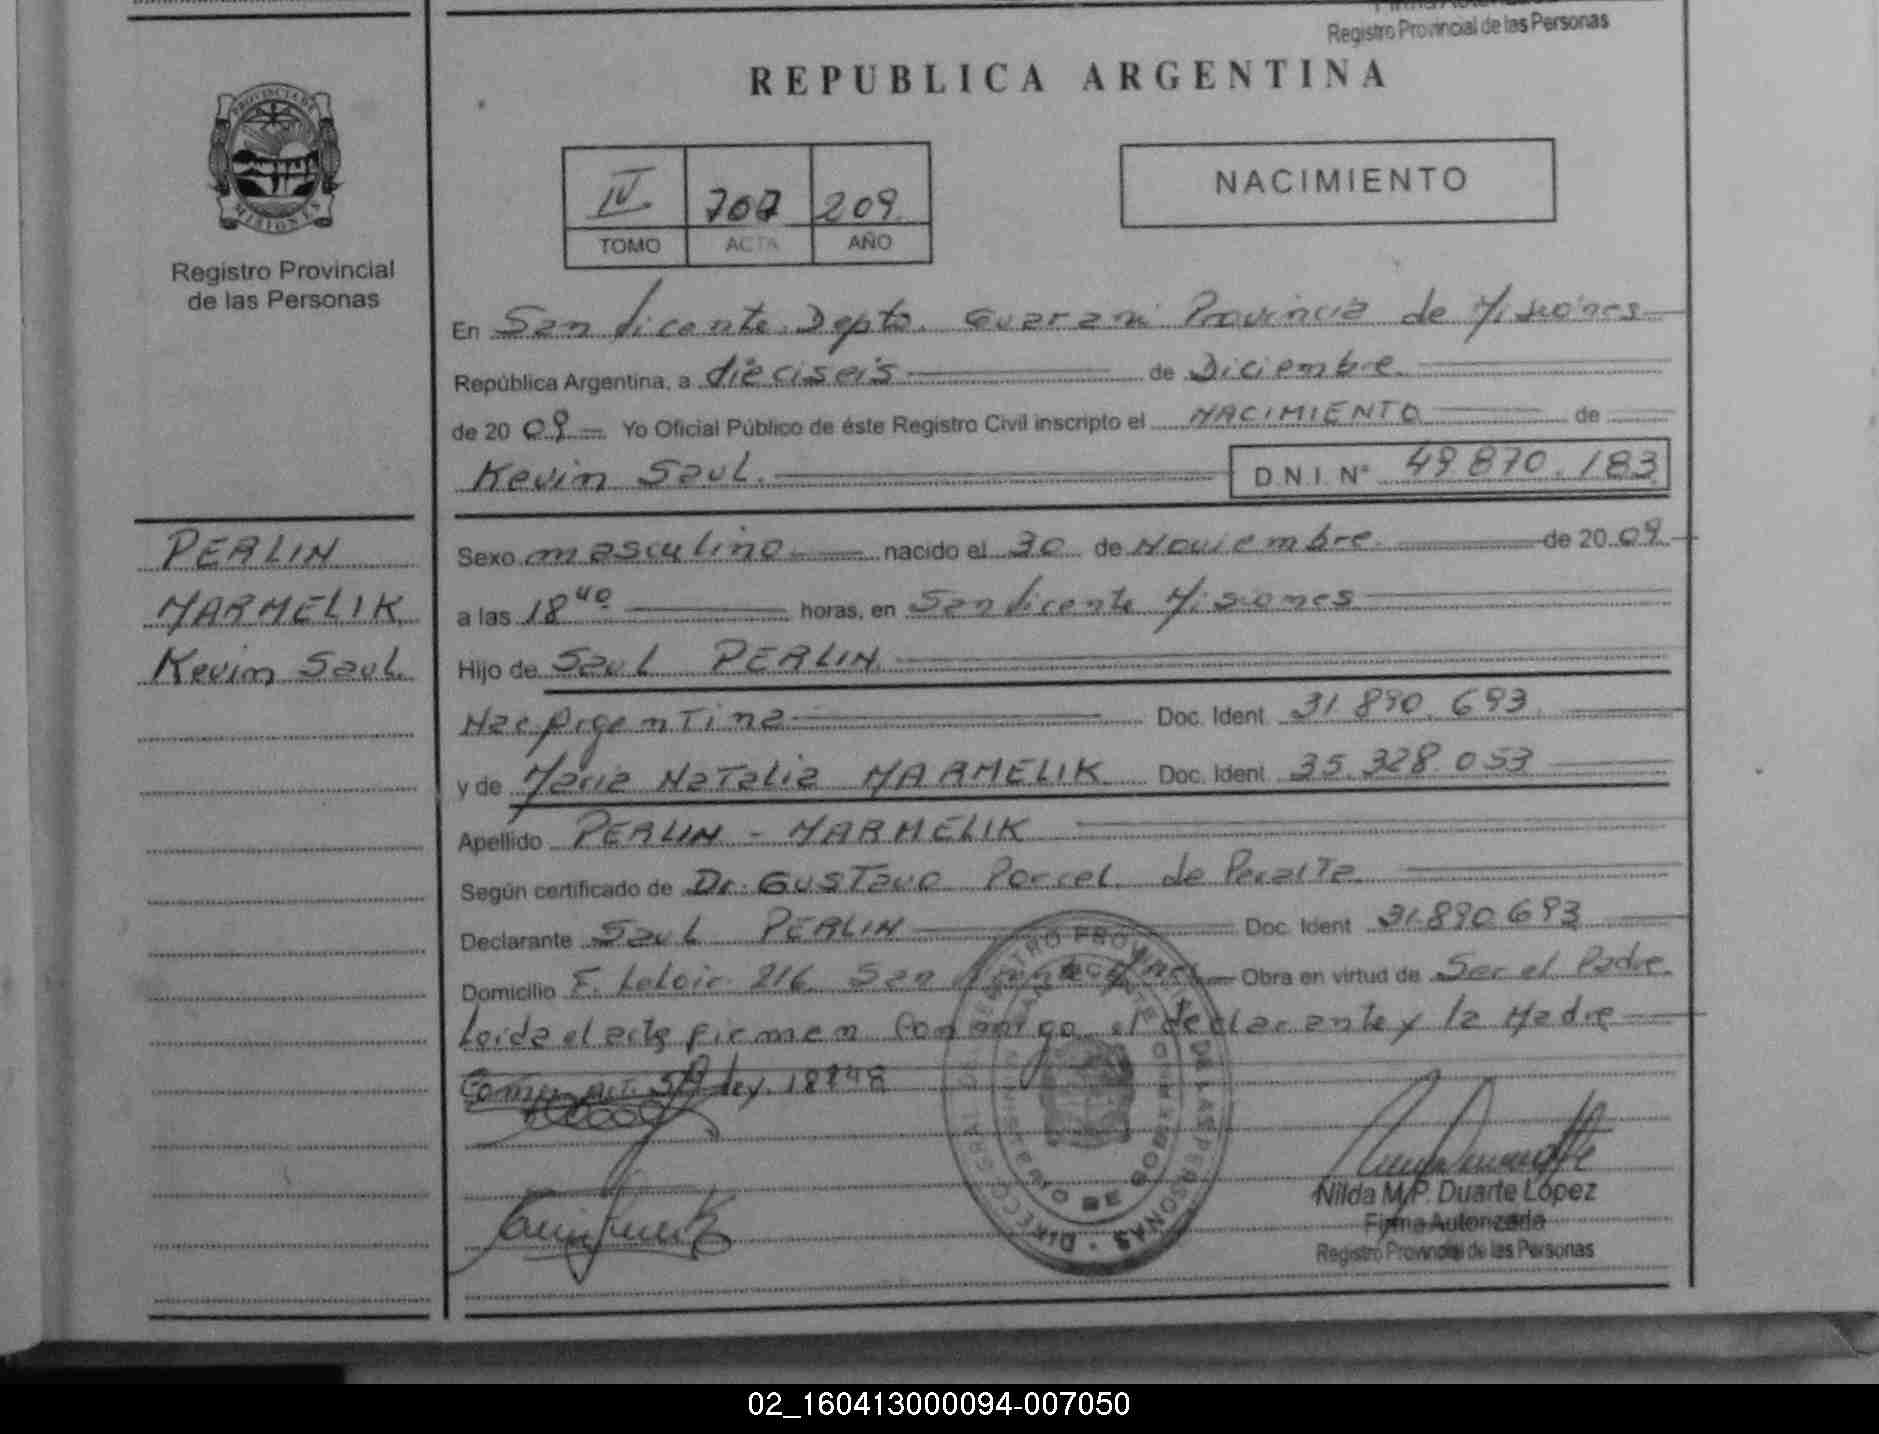 Registro Provincial de las Personas
REPUBLICA ARGENTINA
PROVINCIA DE
MISIONES
Registro Provincial
de las Personas
IV 707 209
TOMO ACTA AÑO
NACIMIENTO
En San Vicente Depto. Guarani Provincia de Misiones
República Argentina, a dieciseis de Diciembre
de 20 09 Yo Oficial Público de éste Registro Civil inscripto el NACIMIENTO de
Kevin Saul. D.N.I. N° 49870.183
PERLIN
MARMELIK
Kevin Saul.
Sexo masculino nacido el 30 de Noviembre de 20 09
a las 18 40 horas, en San Vicente Misiones
Hijo de Saul PERLIN
Nac Argentina Doc. Ident 31.890.693
y de Maria Natalia MARMELIK Doc. Ident 35.328.053
Apellido PERLIN - MARMELIK
Según certificado de Dr. Gustavo Porcel de Peralta
Declarante Saul PERLIN Doc. Ident 31.890.693
Domicilio E. Leloir 216 San Obra en virtud de Ser el Padre
Leida el acta firman Conmigo el declarante y la Madre
ley. 18248
Nilda M.P. Duarte López
Firma Autorizada
Registro Provincial de las Personas
02_160413000094-007050